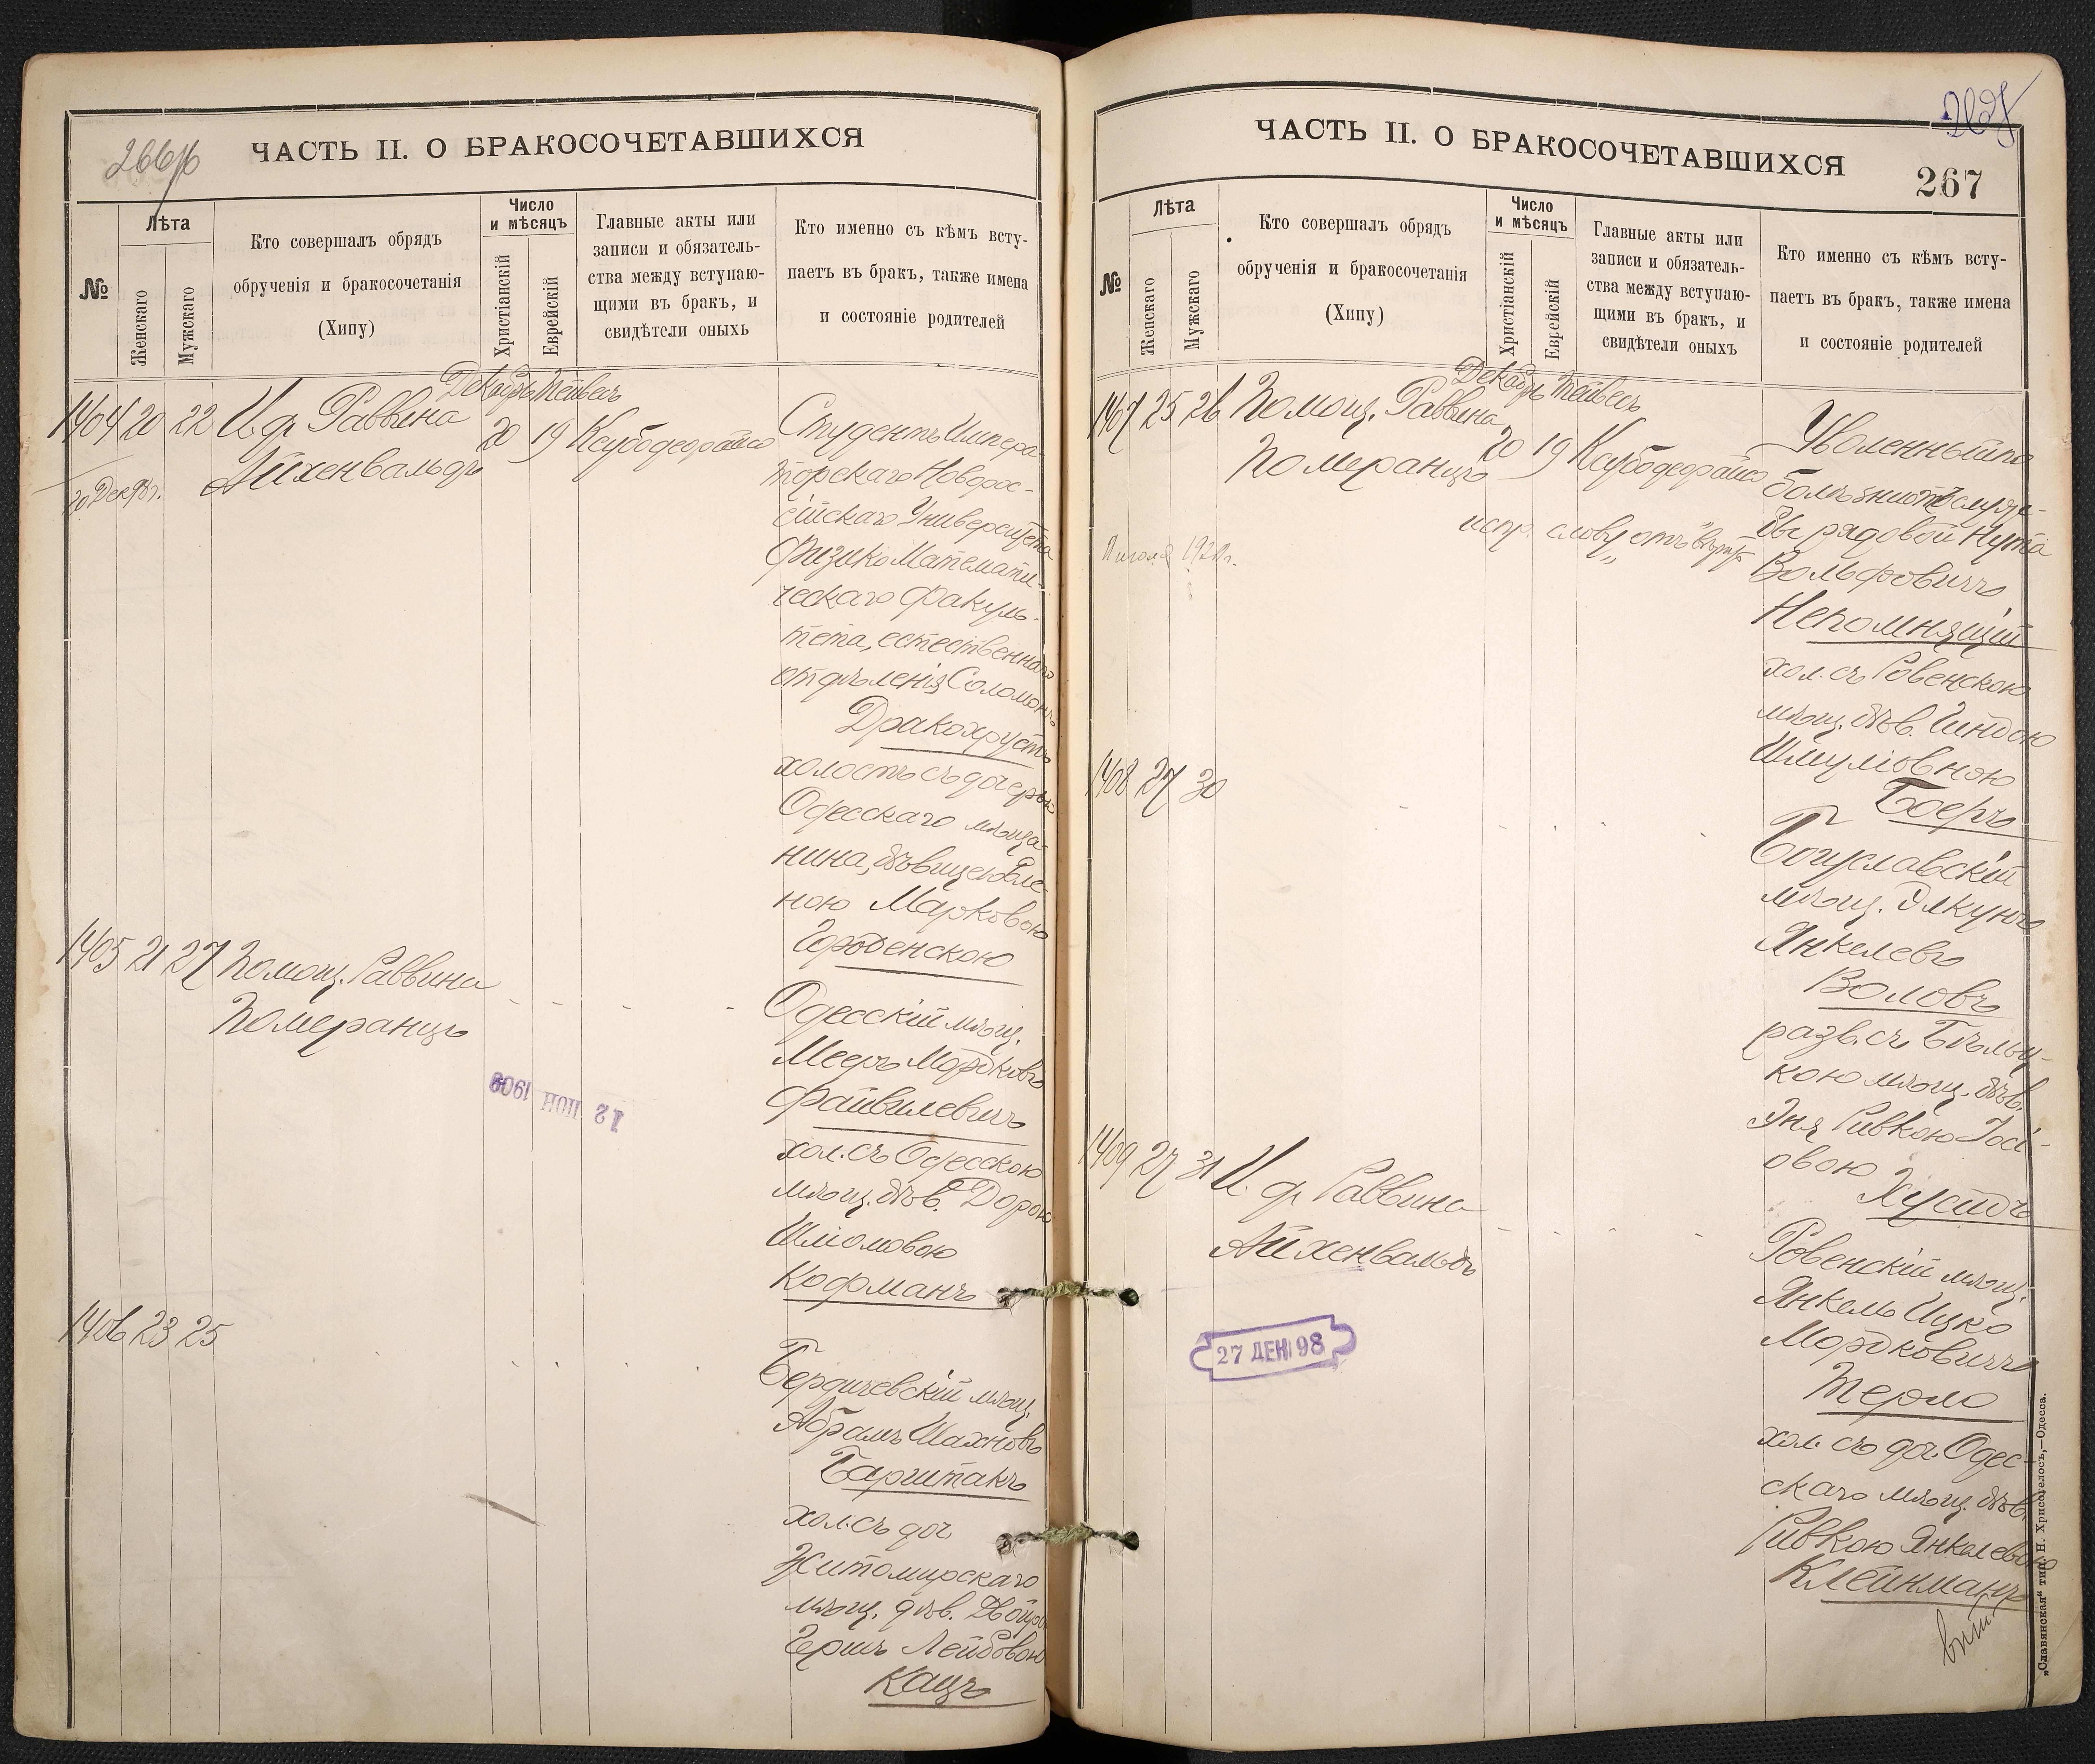 266 об
ЧАСТЬ II. О БРАКОСОЧЕТАВШИХСЯ
№
Лѣта
Женскаго
Мужскаго
Кто совершалъ обрядъ
обрученія и бракосочетанія
(Хипу)
Число
и мѣсяцъ
Христіанскій
Еврейскій
Главные акты или
записи и обязатель-
ства между вступаю-
щими въ бракъ, и
свидѣтели оныхъ
Кто именно съ кѣмъ всту-
паетъ въ бракъ, также имена
и состояніе родителей
Декабрь Тейвесъ
1404 20 22 И. д. Раввина 20 19
Айхенвальдъ
20 Декбр.
Студентъ Импера-
торскаго Новорос-
сійскаго Университета
Физико Математи-
ческаго Факуль-
тета, естественнаго
отдѣленія Соломонъ
Дракохрустъ
холостъ съ дочерью
Одесскаго мѣща-
нина, дѣвицею Еле-
ною Марковою
Гроденскою
1405 21 27 Помощ. Раввина
Померанцъ
Одесскій мѣщ.
Мееръ Мордковъ
Файвилевичъ
хол. съ Одесскою
мѣщ. дѣв. Дорою
Шліомовою
Кофманъ
12 ІЮН 1908
1406 23 25
Бердичевскій мѣщ.
Абрамъ Шахновъ
Барштакъ
хол. съ доч
Житомирскаго
мѣщ. дѣв. Двойрою
Гершъ Лейбовою
Кацъ
267
ЧАСТЬ II. О БРАКОСОЧЕТАВШИХСЯ
267
№
Лѣта
Женскаго
Мужскаго
Кто совершалъ обрядъ
обрученія и бракосочетанія
(Хипу)
Число
и мѣсяцъ
Христіанскій
Еврейскій
Главные акты или
записи и обязатель-
ства между вступаю-
щими въ бракъ, и
свидѣтели оныхъ
Кто именно съ кѣмъ всту-
паетъ въ бракъ, также имена
и состояніе родителей
Декабрь Тейвесъ
1407 25 26 Помощ. Раввина 20 19
Померанцъ
испр. слову отъ вѣрить
Уволенный по
болѣзни отъ служ-
бы рядовой Нута
Вольфовичъ
Непомнящій
хол. съ Ровенскою
мѣщ. дѣв. Гиндою
Шмуліовною
Боеръ
1408 27 30
Богуславскій
мѣщ. Элкунъ
Янкелевъ
Воловъ
разв. съ Бѣльц-
кою мѣщ. дѣв.
Эня Ривкою Іосі-
овою
Хусидъ
1409 27 31 И. д. Раввина
Айхенвальдъ
27 ДЕК 98
Ровенскій мѣщ.
Янкель Ицко
Мордковичъ
Терло
хол. съ доч. Одес-
скаго мѣщ. дѣв.
Ривкою Янкелевою
Клейнманъ
„Славянская“ тип. Н. Хрисогелосъ,—Одесса.